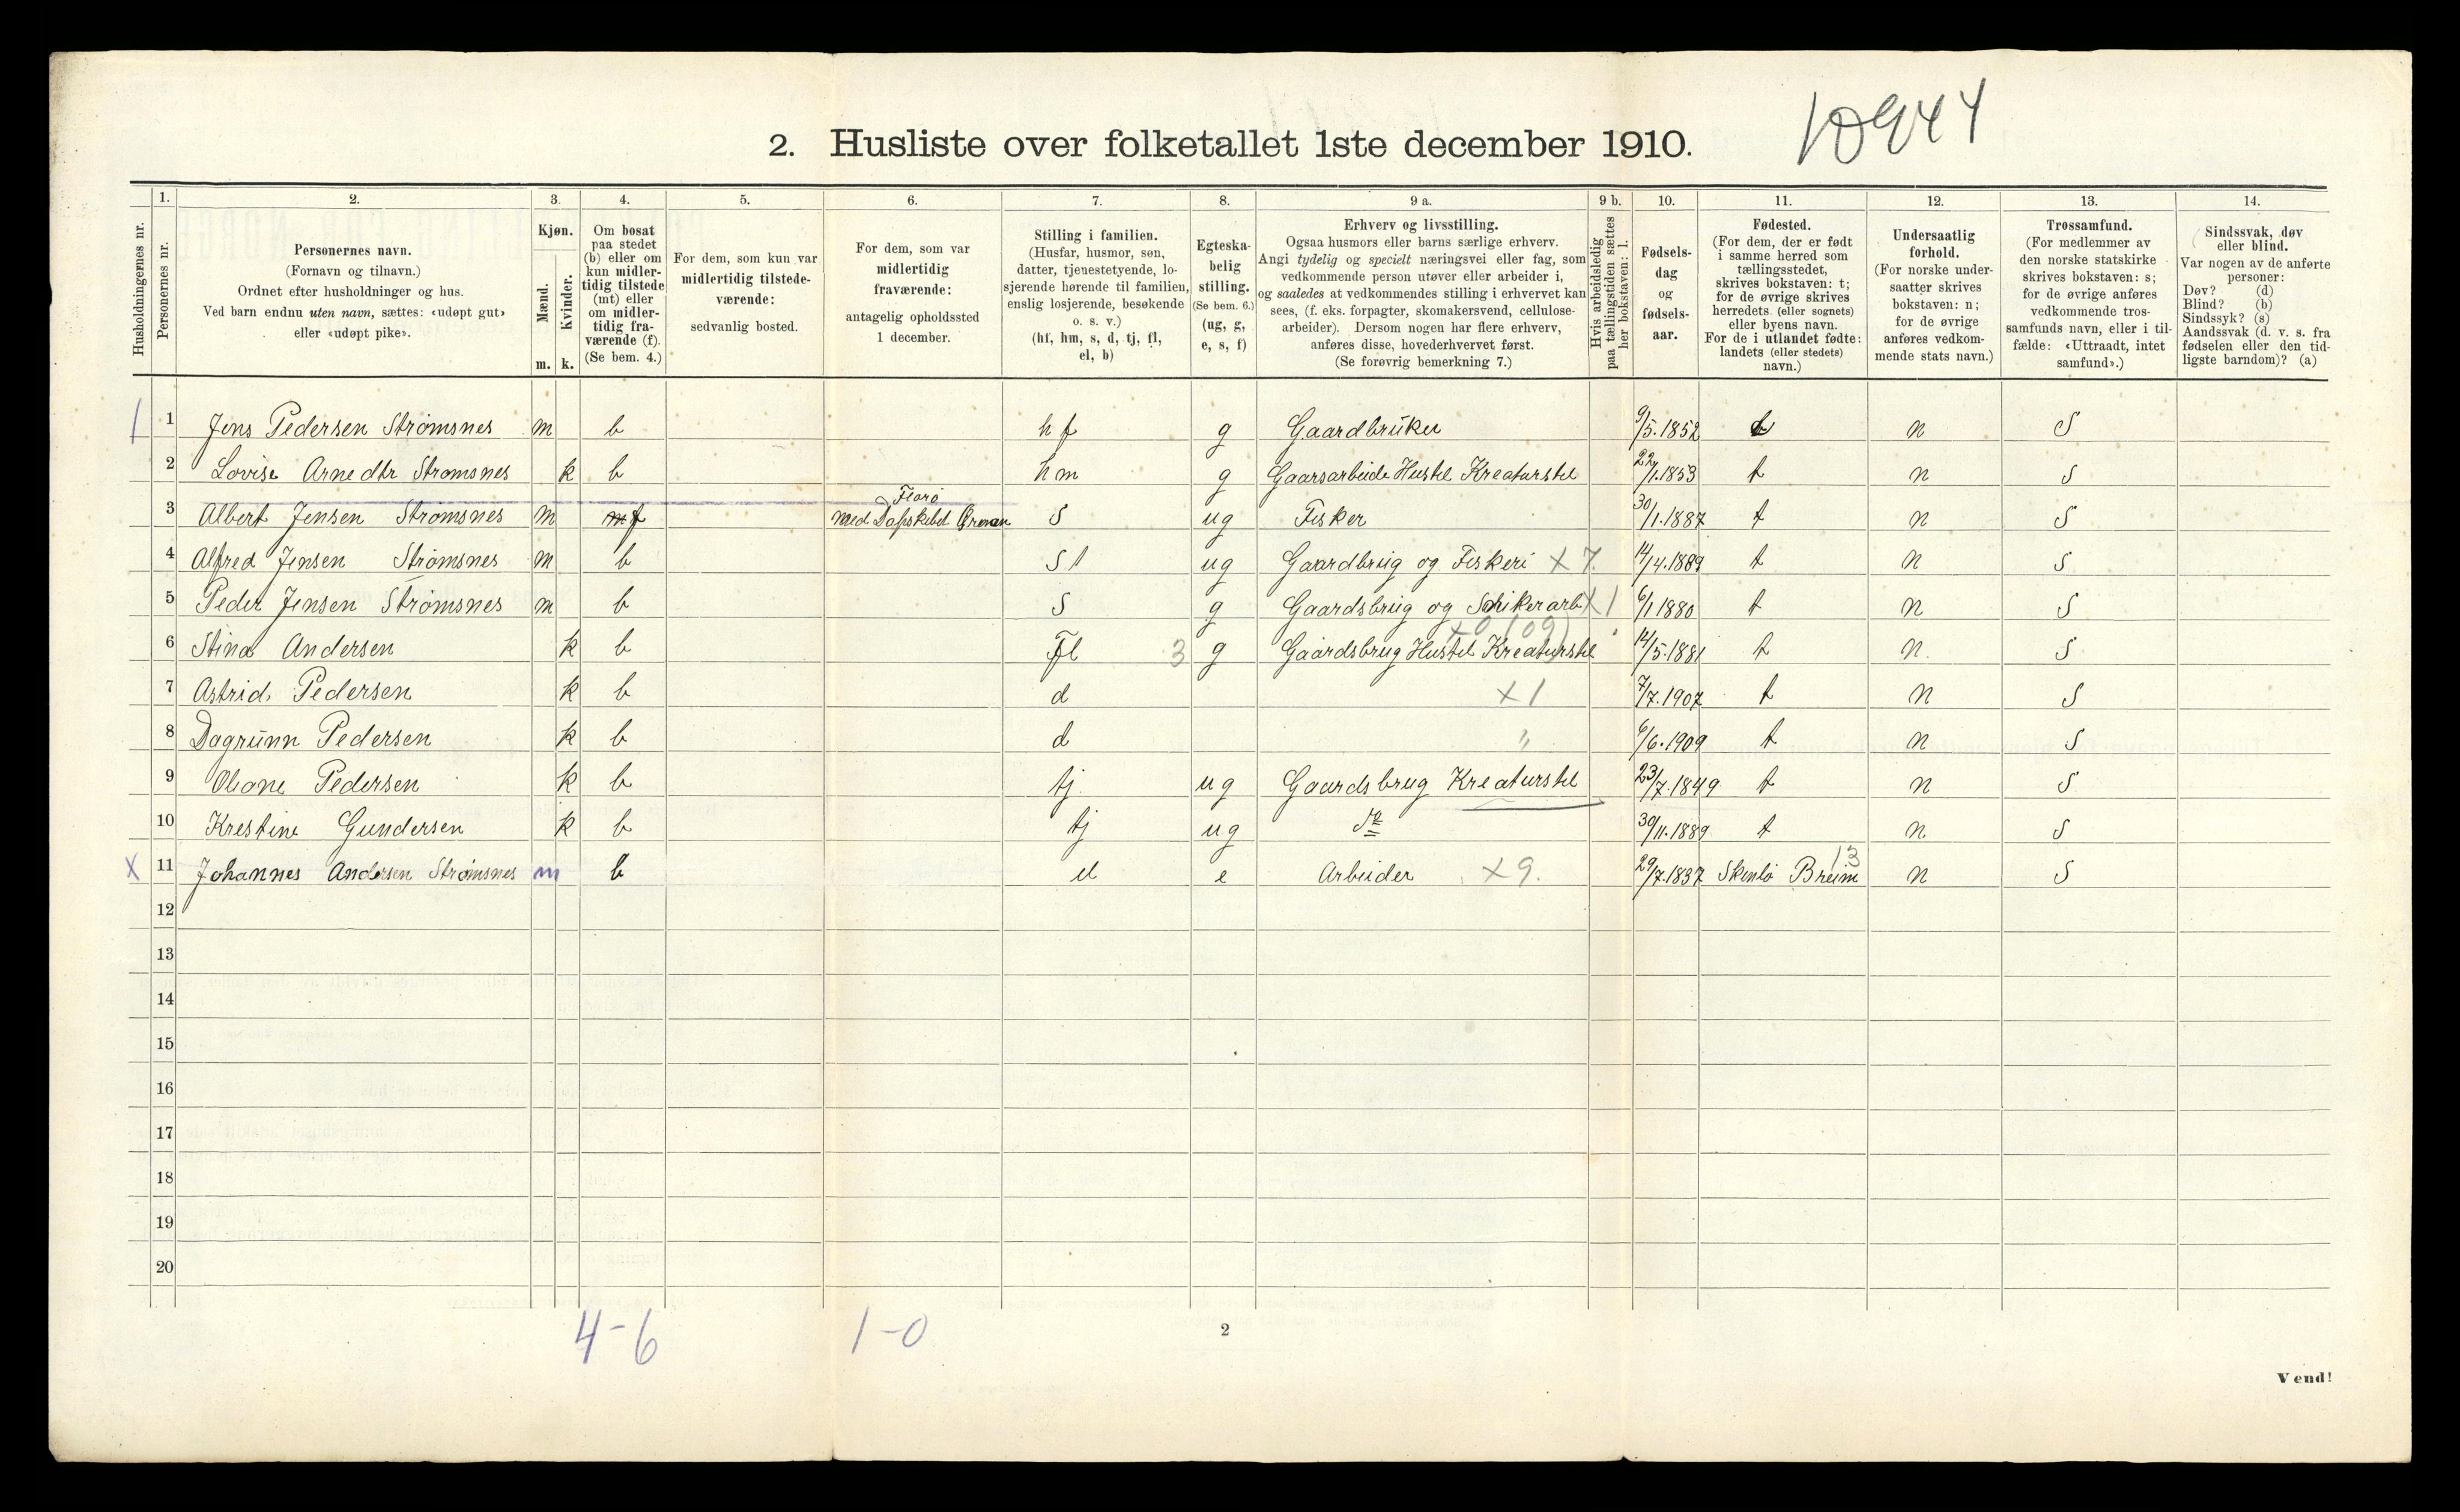 2. Husliste over folketallet 1ste december 1910.
10944
Husholdningernes nr.
1. Personernes nr.
2. Personernes navn.
(Fornavn og tilnavn.)
Ordnet efter husholdninger og hus.
Ved barn endnu uten navn, sættes: «udøpt gut»
eller «udøpt pike».
3. Kjøn.
Mænd. m.
Kvinder. k.
4. Om bosat
paa stedet
(b) eller om
kun midler-
tidig tilstede
(mt) eller
om midler-
tidig fra-
værende (f).
(Se bem. 4.)
5. For dem, som kun var
midlertidig tilstede-
værende:
sedvanlig bosted.
6. For dem, som var
midlertidig
fraværende:
antagelig opholdssted
1 december.
7. Stilling i familien.
(Husfar, husmor, søn,
datter, tjenestetyende, lo-
sjerende hørende til familien,
enslig losjerende, besøkende
o. s. v.)
(hf, hm, s, d, tj, fl,
el, b)
8. Egteska-
belig
stilling.
(Se bem. 6.)
(ug, g,
e, s, f)
9 a. Erhverv og livsstilling.
Ogsaa husmors eller barns særlige erhverv.
Angi tydelig og specielt næringsvei eller fag, som
vedkommende person utøver eller arbeider i,
og saaledes at vedkommendes stilling i erhvervet kan
sees, (f. eks. forpagter, skomakersvend, cellulose-
arbeider). Dersom nogen har flere erhverv,
anføres disse, hovederhvervet først.
(Se forøvrig bemerkning 7.)
9 b. Hvis arbeidsledig
paa tællingstiden sættes
her bokstaven: l.
10. Fødsels-
dag
og
fødsels-
aar.
11. Fødested.
(For dem, der er født
i samme herred som
tællingsstedet,
skrives bokstaven: t;
for de øvrige skrives
herredets (eller sognets)
eller byens navn.
For de i utlandet fødte:
landets (eller stedets)
navn.)
12. Undersaatlig
forhold.
(For norske under-
saatter skrives
bokstaven: n;
for de øvrige
anføres vedkom-
mende stats navn.)
13. Trossamfund.
(For medlemmer av
den norske statskirke
skrives bokstaven: s;
for de øvrige anføres
vedkommende tros-
samfunds navn, eller i til-
fælde: «Uttraadt, intet
samfund».)
14. Sindssvak, døv
eller blind.
Var nogen av de anførte
personer:
Døv? (d)
Blind? (b)
Sindssyk? (s)
Aandssvak (d. v. s. fra
fødselen eller den tid-
ligste barndom)? (a)
1 1 Jens Pedersen Strømsnes m b hf g Gaardbruker 9/5.1852 t n S
2 Lovise Arnedtr Strømsnes k b hm g Gaarsarbeide Hustel Kreaturstel 22/1.1853 t n S
Florø
3 Albert Jensen Strømsnes m f med S ug Fisker 30/1.1887 t n S
4 Alfred Jensen Strømsnes m b S ug Gaardbrug og Fiskeri x 7 14/4.1889 t n S
5 Peder Jensen Strømsnes m b S g Gaardsbrug og x 1 6/1 1880 t n S
x 0 (09)
6 Stina Andersen k b Fl 3 g Gaardsbrug Hustel Kreaturstel 14/5.1881 t n. S
7 Astrid Pedersen k b d x 1 7/7.1907 t n S
8 Dagrunn Pedersen k b d " 6/6.1909 t n S
9 Oliane Pedersen k b tj ug Gaardsbrug Kreaturstel 23/7.1849 t n S
10 Krestine Gundersen k b tj ug do 30/11.1889 t n S
x 11 Johannes Andersen Strømsnes m b el e Arbeider x 9. 29/7.1837 Breim 13 n S
12
13
14
15
16
17
18
19
20
4-6 1-0
2
Vend!